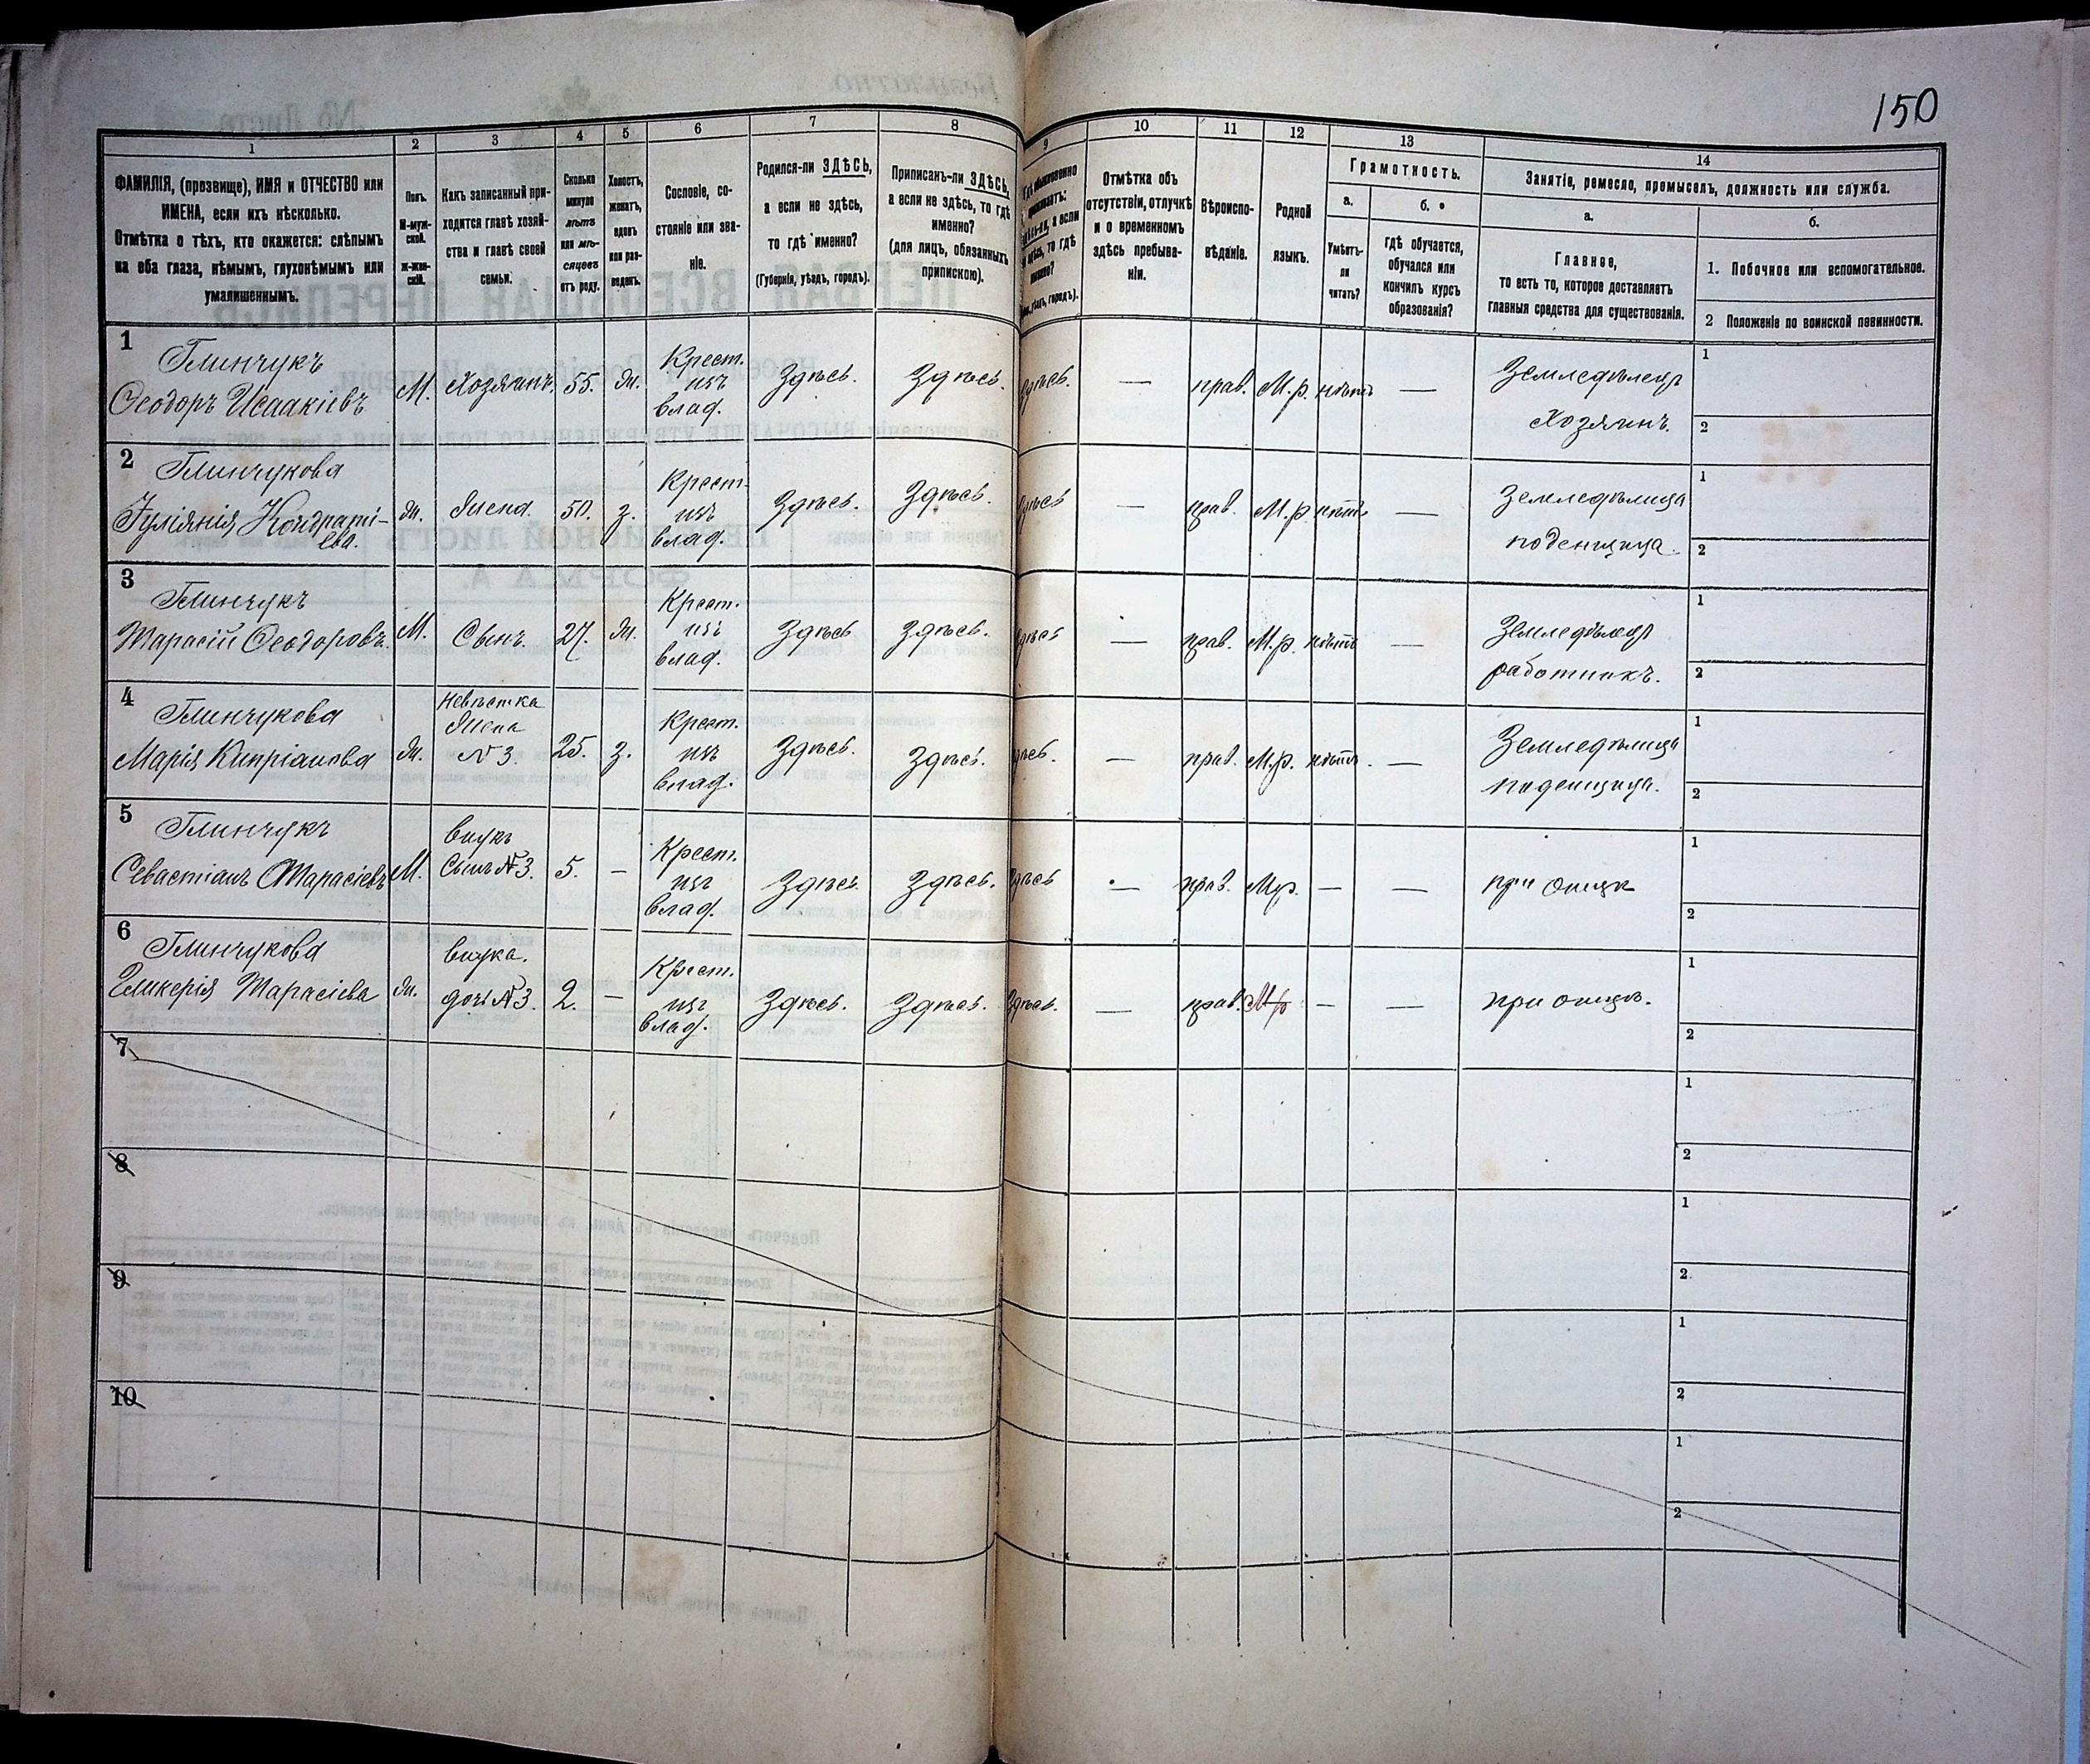 150
1 2 3 4 5 6 7 8 9 10 11 12 13 14
ФАМИЛІЯ, (прозвище), ИМЯ и ОТЧЕСТВО или
ИМЕНА, если ихъ нѣсколько.
Отмѣтка о тѣхъ, кто окажется: слѣпымъ
на оба глаза, нѣмымъ, глухонѣмымъ или
умалишеннымъ.
Полъ.
М-муж-
ской.
Ж-жен-
скій.
Какъ записанный при-
ходится главѣ хозяй-
ства и главѣ своей
семьи.
Сколько
минуло
лѣтъ
или мѣ-
сяцевъ
отъ роду.
Холостъ,
женатъ,
вдовъ
или раз-
веденъ.
Сословіе, со-
стояніе или зва-
ніе.
Родился-ли ЗДѢСЬ,
а если не здѣсь,
то гдѣ именно?
(Губернія, уѣздъ, городъ).
Приписанъ-ли ЗДѢСЬ,
а если не здѣсь, то гдѣ
именно?
(для лицъ, обязанныхъ
припискою).
Отмѣтка объ
отсутствіи, отлучкѣ
и о временномъ
здѣсь пребыва-
ніи.
Вѣроиспо-
вѣданіе.
Родной
языкъ.
Грамотность.
а.
Умѣетъ-
ли
читать?
б.
гдѣ обучается,
обучался или
кончилъ курсъ
образованія?
Занятіе, ремесло, промыселъ, должность или служба.
а.
Главное,
то есть то, которое доставляетъ
главныя средства для существованія.
б.
1. Побочное или вспомогательное.
2 Положеніе по воинской повинности.
1
Глинчукъ
Ѳеодоръ Исаакіевъ
М. Хозяинъ. 55. ж.
Крест.
изъ
влад.
Здѣсь. Здѣсь. Здѣсь. — прав. М.р. нѣтъ —
Земледѣлецъ
Хозяинъ.
1
2
2
Глинчукова
Іуліянія Кондраті-
ева.
ж. Жена 50. з.
Крест.
изъ
влад.
Здѣсь. Здѣсь. Здѣсь — прав. М.р нѣтъ —
Земледѣлица
поденщица.
1
2
3
Глинчукъ
Тарасій Ѳеодоровъ.
М. Сынъ. 27. ж.
Крест.
изъ
влад.
Здѣсь Здѣсь. Здѣсь — прав. М.р. нѣтъ —
Земледѣлецъ
работникъ.
1
2
4
Глинчукова
Марія Кипріанова
ж.
Невѣстка
Жена
N 3.
25. з.
Крест.
изъ
влад.
Здѣсь. Здѣсь. Здѣсь. — прав. М.р. нѣтъ. —
Земледѣлица
поденщица.
1
2
5
Глинчукъ
Севастіанъ Тарасіевъ
М.
внукъ
Сынъ N 3.
5. —
Крест.
изъ
влад.
Здѣсь Здѣсь. Здѣсь — прав. М.р. — —
при отцѣ
1
2
6
Глинчукова
Гликерія Тарасіева
ж.
внука.
дочь N 3.
2. —
Крест.
изъ
влад.
Здѣсь. Здѣсь. Здѣсь. — прав. М.р — —
при отцѣ.
1
2
7
1
2
8
1
2
9
1
2
10
1
2